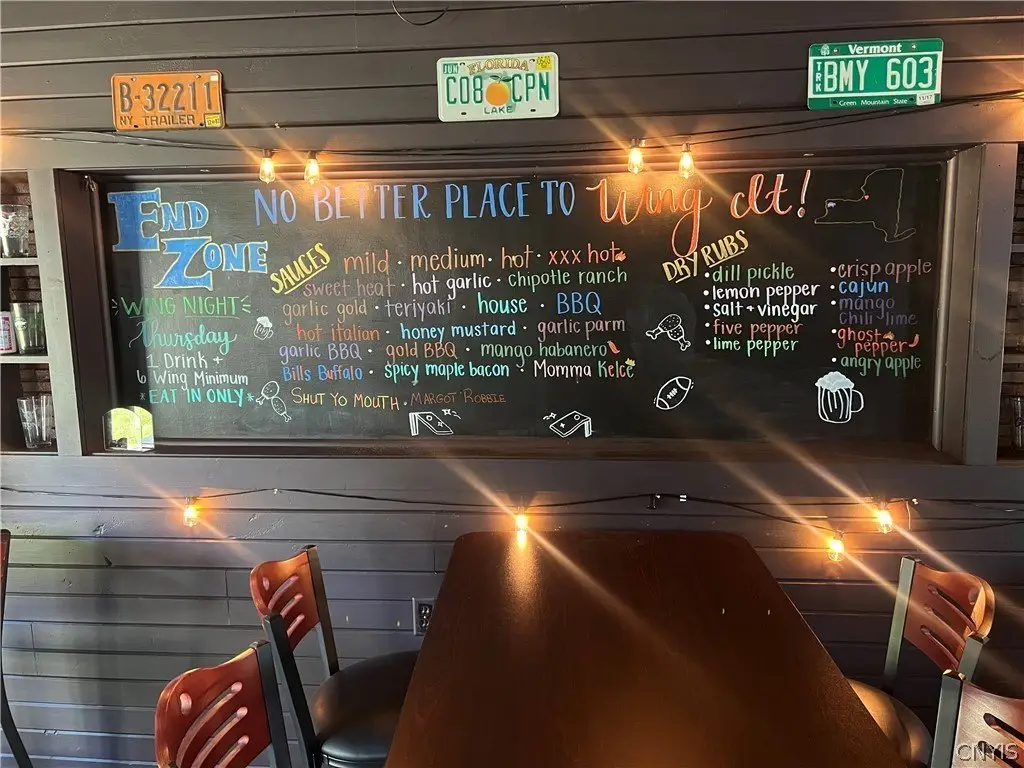 B-32211
NY TRAILER
JUN
FLORIDA
CO8 CPN
LAKE
Vermont
TRK BMY 603
Green Mountain State
END ZONE
NO BETTER PLACE TO Wing It!
WING NIGHT
Thursday
1 Drink +
6 Wing Minimum
*EAT IN ONLY*
SAUCES
mild · medium · hot · xxx hot
sweet heat · hot garlic · chipotle ranch
garlic gold · teriyaki · house · BBQ
hot italian · honey mustard · garlic parm
garlic BBQ · gold BBQ · mango habanero
Bills Buffalo · spicy maple bacon · Momma Kelce
SHUT YO MOUTH · MARGOT ROBBIE
DRY RUBS
• dill pickle
• lemon pepper
• salt + vinegar
• five pepper
• lime pepper
• crisp apple
• cajun
• mango chili lime
• ghost pepper
• angry apple
CNYIS